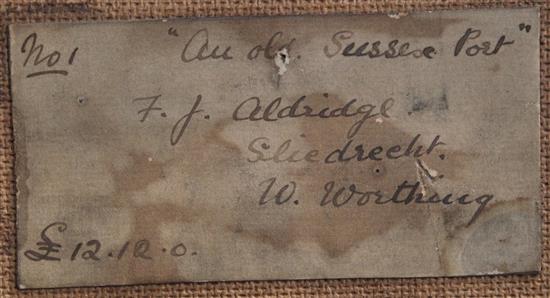 No 1 "An old Sussex Port"
F. J. Aldridge.
Sliedrecht.
W. Worthing
£12.12.0.